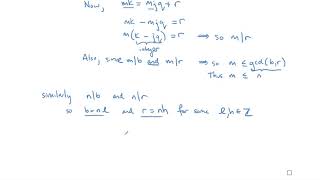 Now, mk = mjq + r
mk - mjq = r
m(k - jq) = r ⇒ so m/r
integer
Also, since m/b and m/r ⇒ so m ≤ gcd(b,r)
Thus m ≤ n
similarly n/b and n/r
so b = nl and r = nh for some l, h ∈ Z